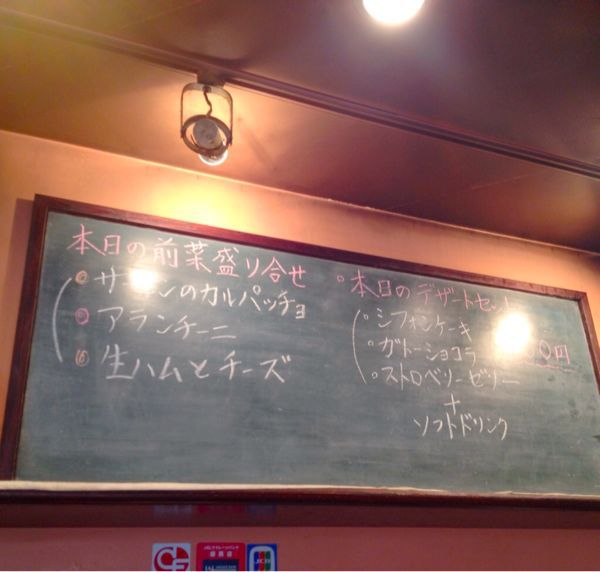 本日の前菜盛り合せ
のカルパッチョ
アランチーニ
生ハムとチーズ
本日のデザートセット
シフォンケーキ
ガトーショコラ
ストロベリーゼリー
+
ソフトドリンク
0円
JCB